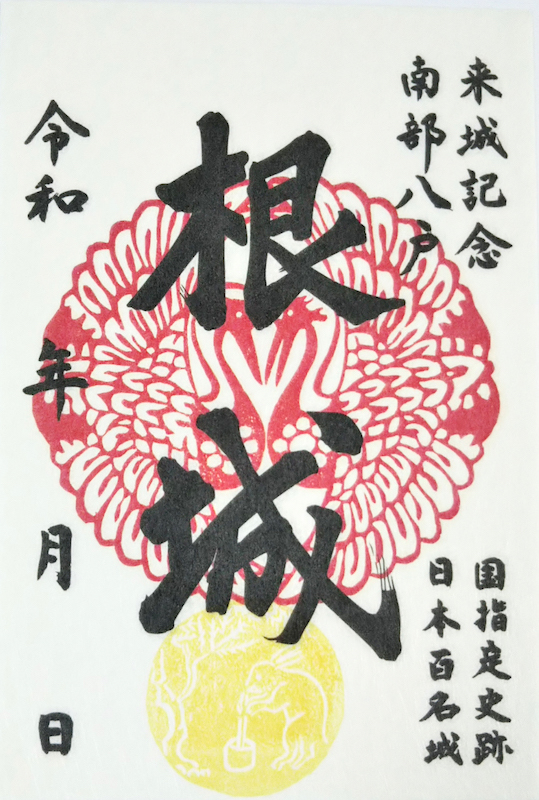 来城記念
南部八戸
国指定史跡
日本百名城
根城
令和 年 月 日